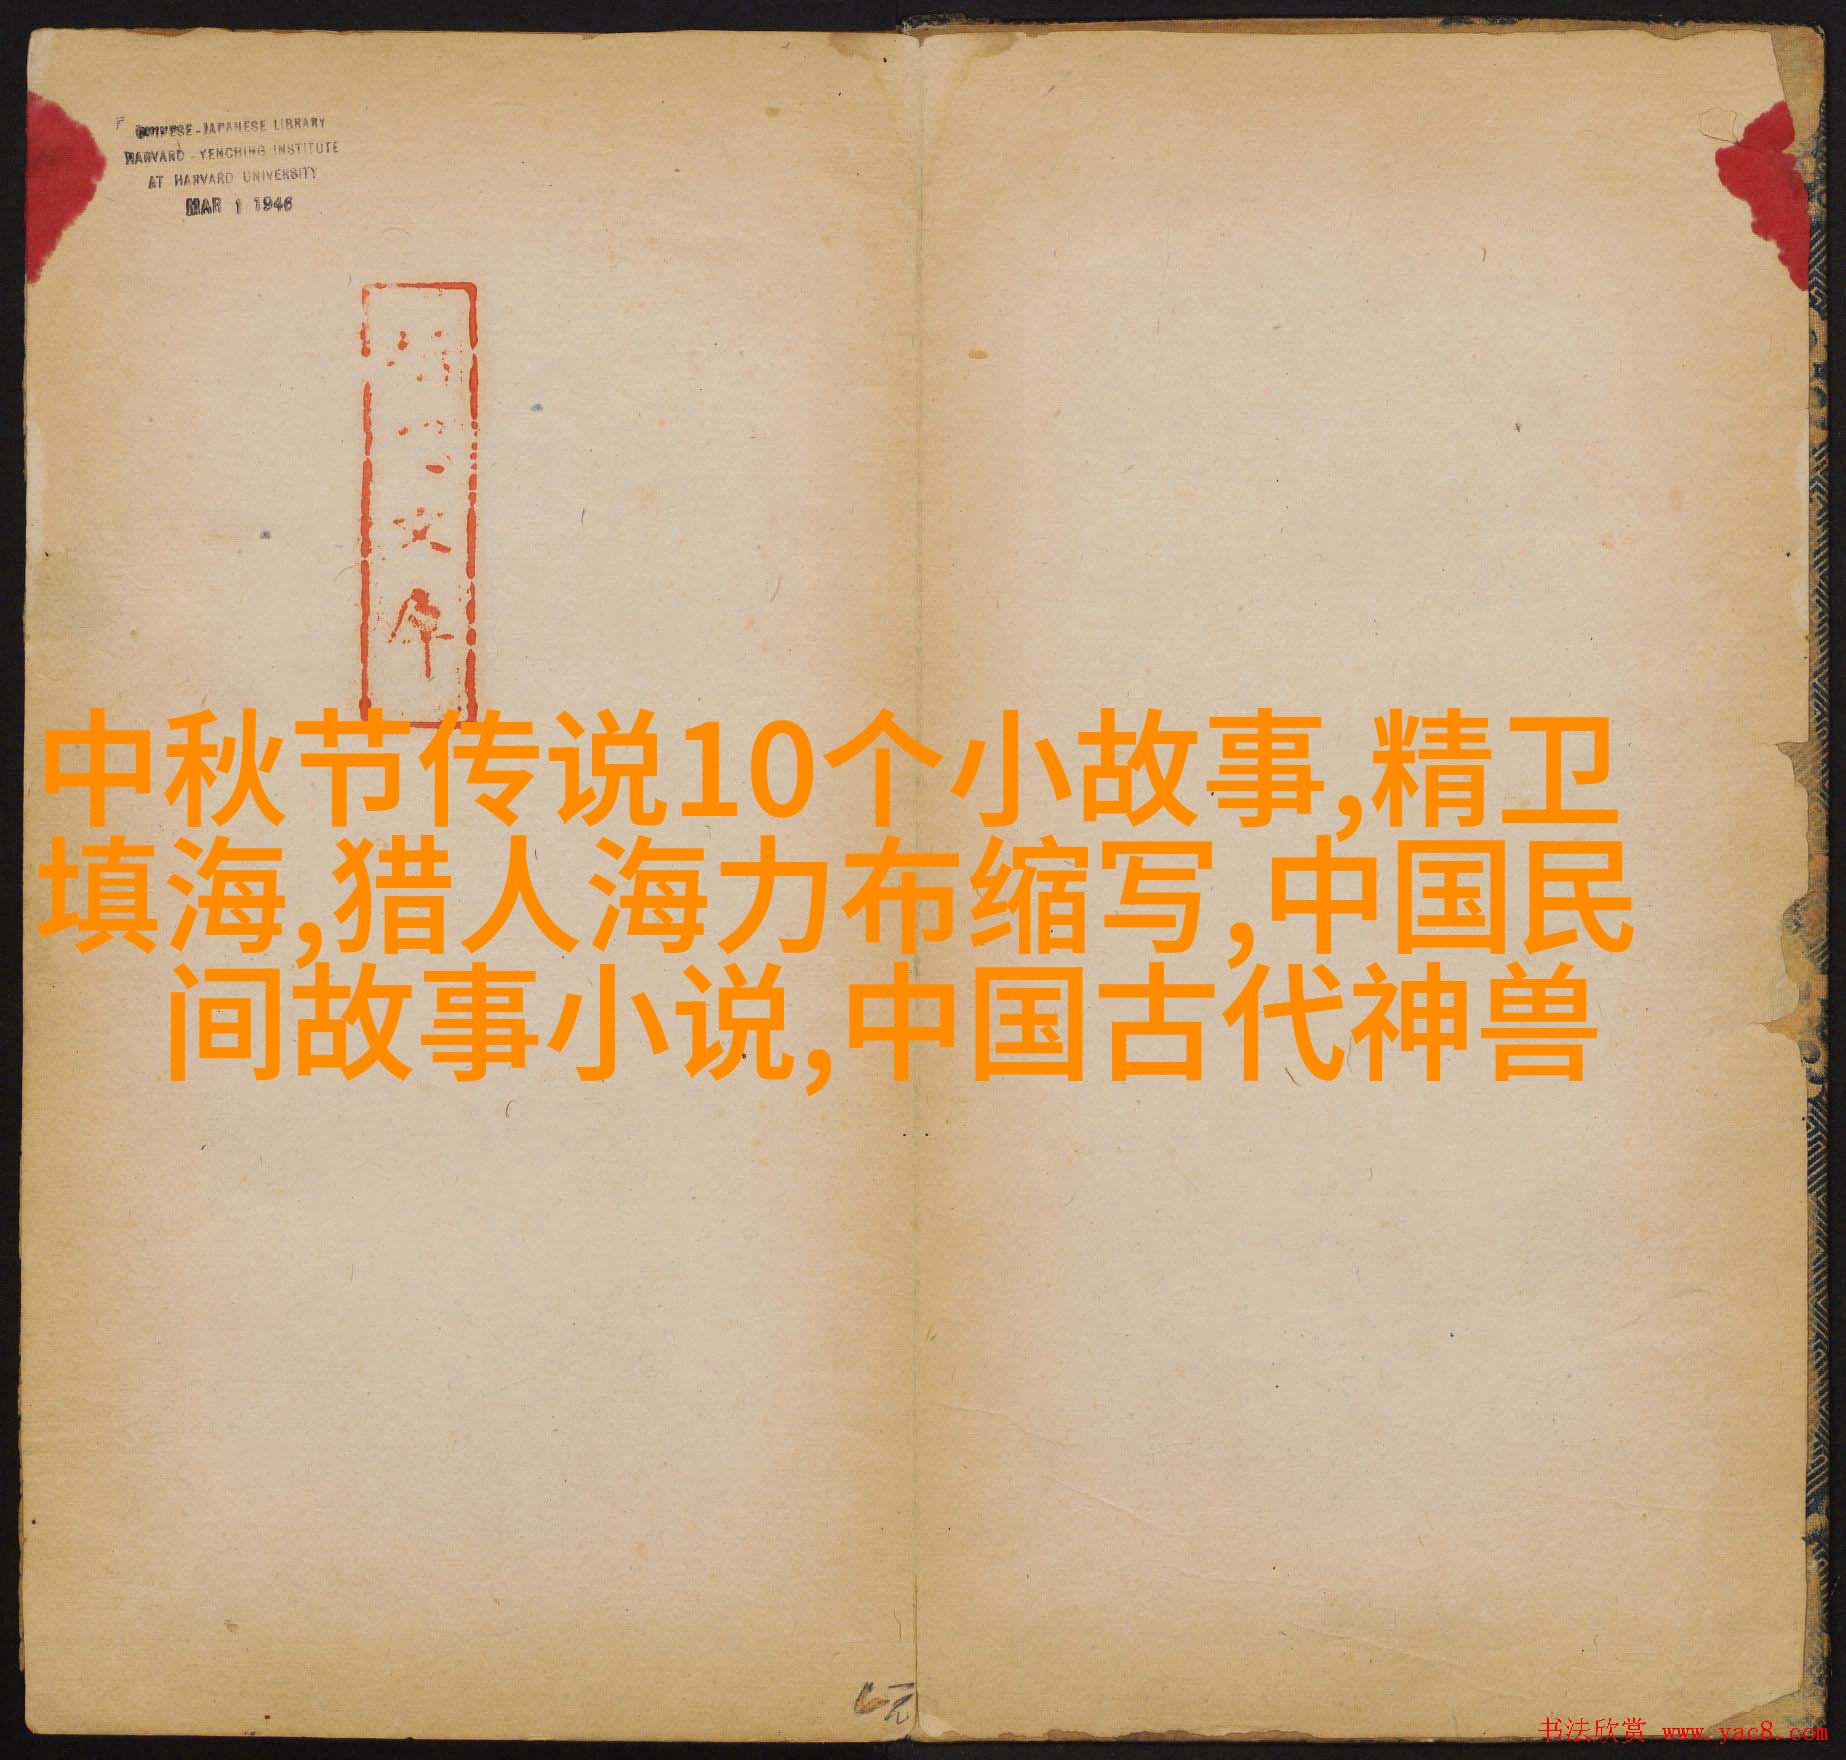 CHINESE-JAPANESE LIBRARY
HARVARD-YENCHING INSTITUTE
AT HARVARD UNIVERSITY
MAR 1 1946
中秋节传说10个小故事,精卫
填海,猎人海力布缩写,中国民
间故事小说,中国古代神兽
书法欣赏 www.yac8.com